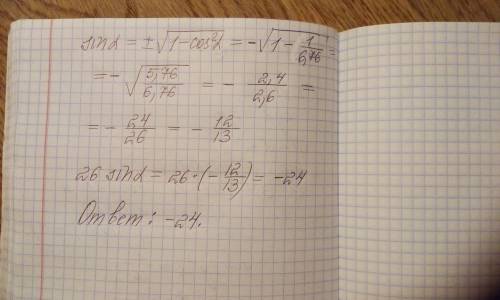 sinα = ±√1-cos²α = -√1 - 1/6,76 =
= - √5,76/6,76 = - 2,4/2,6 =
= - 24/26 = - 12/13
26 sinα = 26 · (-12/13) = -24
Ответ: -24.